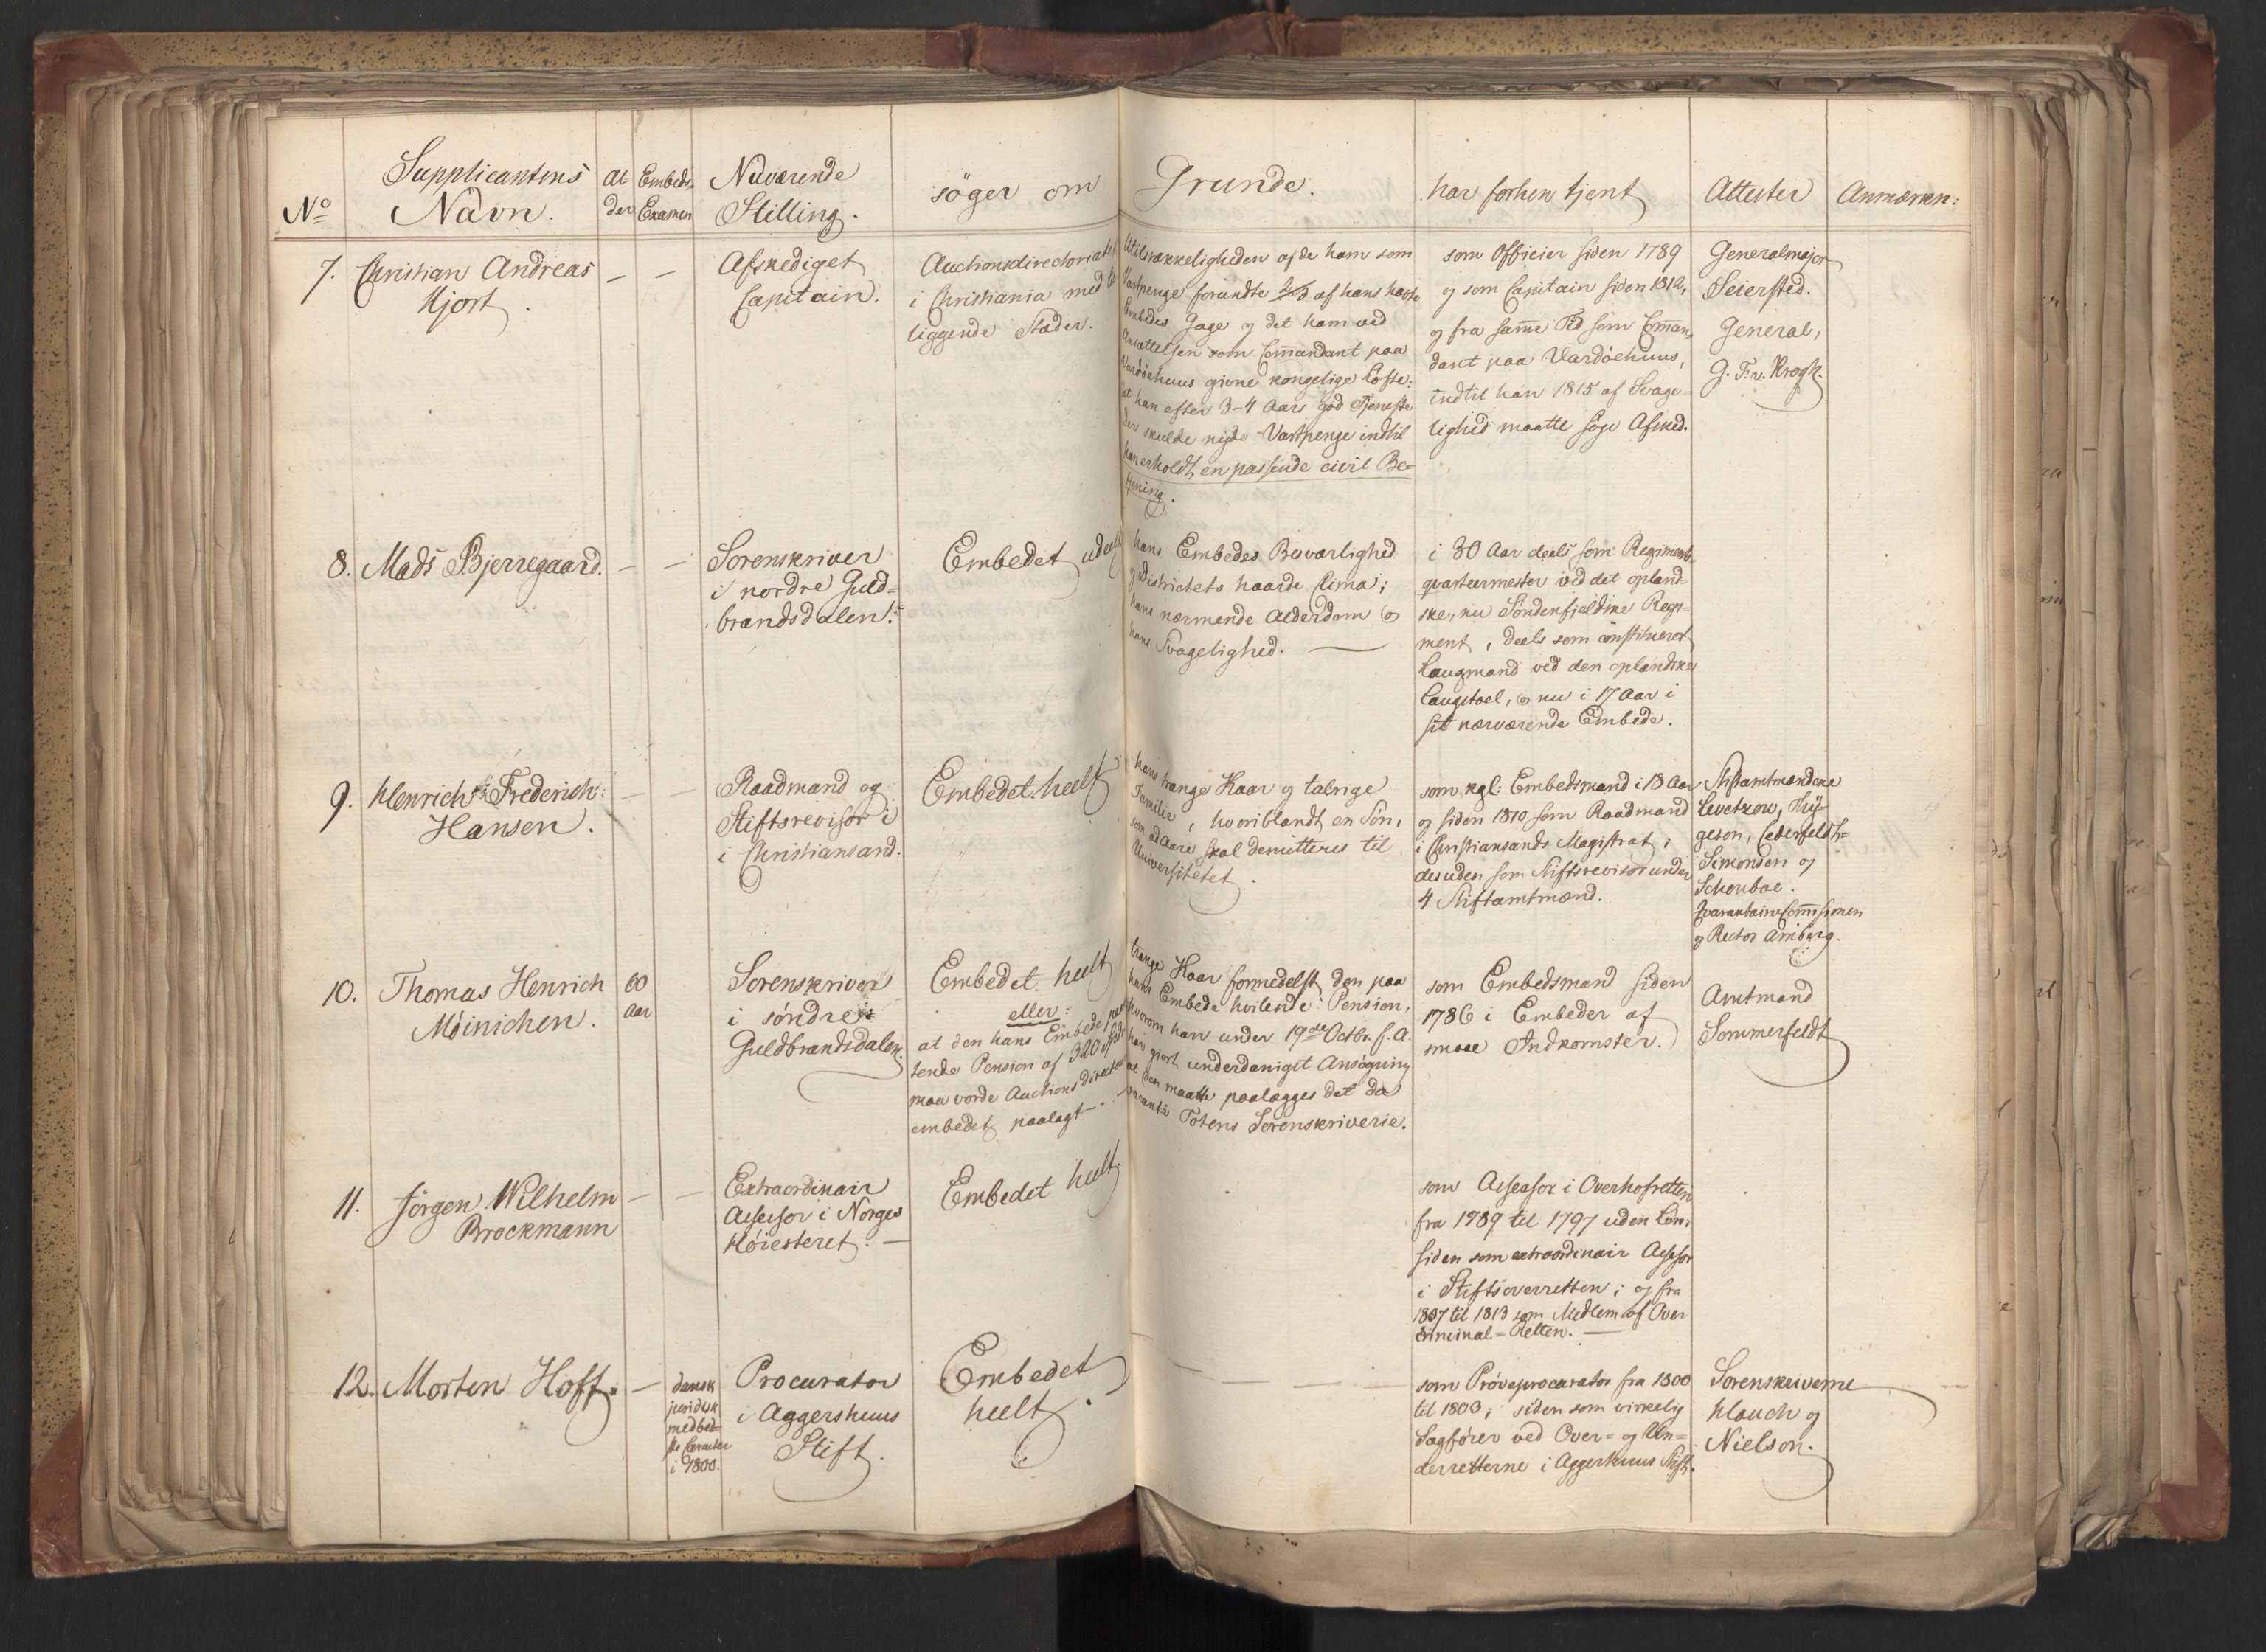 No
Supplicantens
Navn.
Al
der
Embeds
Examen
Nuværende
Stilling.
söger om
Grunde.
har forhen tjent
Attester
Anmærkn:
7. Christian Andreas
Hjort.
— —
Afskediget
Capitain.
Auctionsdirectoriatet
i Christiania med til
liggende Stæder.
Utilstrækkeligheden af de ham som
Vartpenge forundte 2/3 af hans havte
Embedes Gage og det ham ved
Ansættelsen som Com̄andant paa
Vardöehuus givne kongelige Löfte:
at han efter 3-4 Aars god Tjeneste
der skulde nyde Vartpenge indtil
han erholdt en passende civil Be=
tjening.
som Officier siden 1789
og som Capitain siden 1812,
og fra sam̄e Tid som Com̄an
dant paa Vardöehuus,
indtil han 1815 af Svage=
lighed maatte söge Afsked.
Generalmajor
Seiersted.
General,
G. F. v. Krogh.
8. Mads Bjerregaard.
— —
Sorenskriver
i nordre Guld=
brandsdalen.
Embedet udeelt
hans Embedes Besværlighed
og Districtets haarde Clima;
hans nærmende Alderdom og
hans Svagelighed. —
i 30 Aar deels som Regiments
qvarteermester ved det opland=
ske, nu Söndenfjeldske Regi=
ment, deels som constitueret
Laugmand ved den oplandske
Laugstoel, og nu i 17 Aar i
sit nærværende Embede.
9. Henrich Frederich
Hansen.
— —
Raadmand og
Stiftsrevisor i
i Christiansand.
Embedet heelt
hans trange Kaar og talrige
Familie, hvoriblandt en Sön,
som ad Aare skal demitteres til
Universitetet.
som kgl: Embedsmand i 18 Aar
og siden 1810 som Raadmand
i Christiansands Magistrat;
desuden som Stiftsrevisor under
4 Stiftamtmænd.
Stiftamtmændene
Levetzow, Thy=
geson, Cederfeldt=
Simonsen og
Schouboe.
Qvarantaine Com̄issionen
og Rector Amberg.
10. Thomas Henrich
Möinichen.
60
Aar
Sorenskriver
i söndre
Guldbrandsdalen.
Embedet heelt
eller:
at den hans Embede paa
tende Pension af 320
maa vorde Auctionsdirecteur
embedet paalagt. —
trange Kaar formedelst den paa
hans Embede hvilende Pension,
hvorom han under 19de Octbr. f. A.
har gjort underdanigst Ansögning
at den maatte paalægges det da
vacante Totens Sorenskriverie.
som Embedsmand siden
1786 i Embeder af
smaae Indkomster.
Amtmand
Sommerfeldt
11. Jörgen Wilhelm
Brockmann
— —
Extraordinair
Assessor i Norges
Höiesteret. —
Embedet heelt
som Assessor i Overhofretten
fra 1789 til 1797 uden Lön,
siden som extraordinair Assessor
i Stiftsoverretten; og fra
1807 til 1813 som Medlem af Over
criminal=Retten. —
12. Morten Hoff.
—
dansk
juridisk
med bed
ste Caracter
i 1800.
Procurator
i Aggershuus
Stift.
Embedet
heelt.
— — — —
som Pröveprocurator fra 1800
til 1803; siden som virkelig
Sagförer ved Over= og Un=
derretterne i Aggershuus Stift.
Sorenskriverne
Hauch og
Nielson.